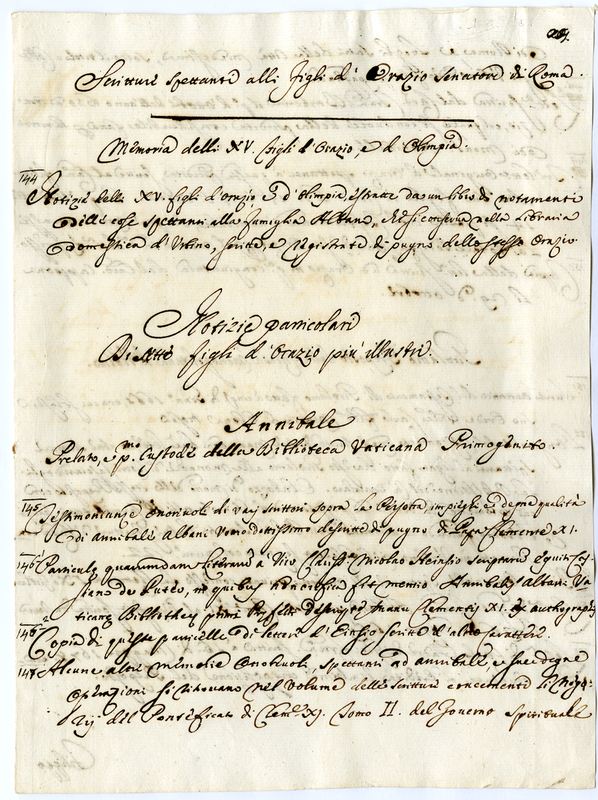 Scritture spettanti alli figli d' Orazio Senatore di Roma.
Memoria delli XV. figli d'Orazio, e d'Olimpia.
144
Notizie delli XV. figli d'Orazio e d'Olimpia, estratte da un libro di notamenti
delle cose spettanti alla famiglia Albani, che si conserva nella Libraria
domestica d'Urbino, scritte, e registrate di pugno dello stesso Orazio
Notizie particolari
Di otto figli d'Orazio più illustri.
Annibale
Prelato, e p.mo Custode della Biblioteca Vaticana Primogenito.
145
Testimonianze onorevoli di varj scrittori sopra la Persona, impieghi, e degne qualità
di Annibale Albani Uomo dottissimo descritte di pugno di Papa Clemente XI.
146
Particulę quarumdam litterarum a Viro Clariss.mo Nicolao Heinsio scriptarum Equiti Cas-
siano de Puteo, in quibus honorifica fit mentio Annibalis Albani Va-
ticanę Bibliothecę primi Pręfecti descriptę manu Clementis XI. ex authographo
146 2
Copia di queste particelle di lettere d'Einsio scritte d'altro carattere.
147
Alcune altre memorie onorevoli, spettanti ad Annibale, e sue degne
operazioni si ritrovano nel Volume delle scritture concernenti li
del Pontificato di Clem.e XI. Tomo II. del Governo Spirituale